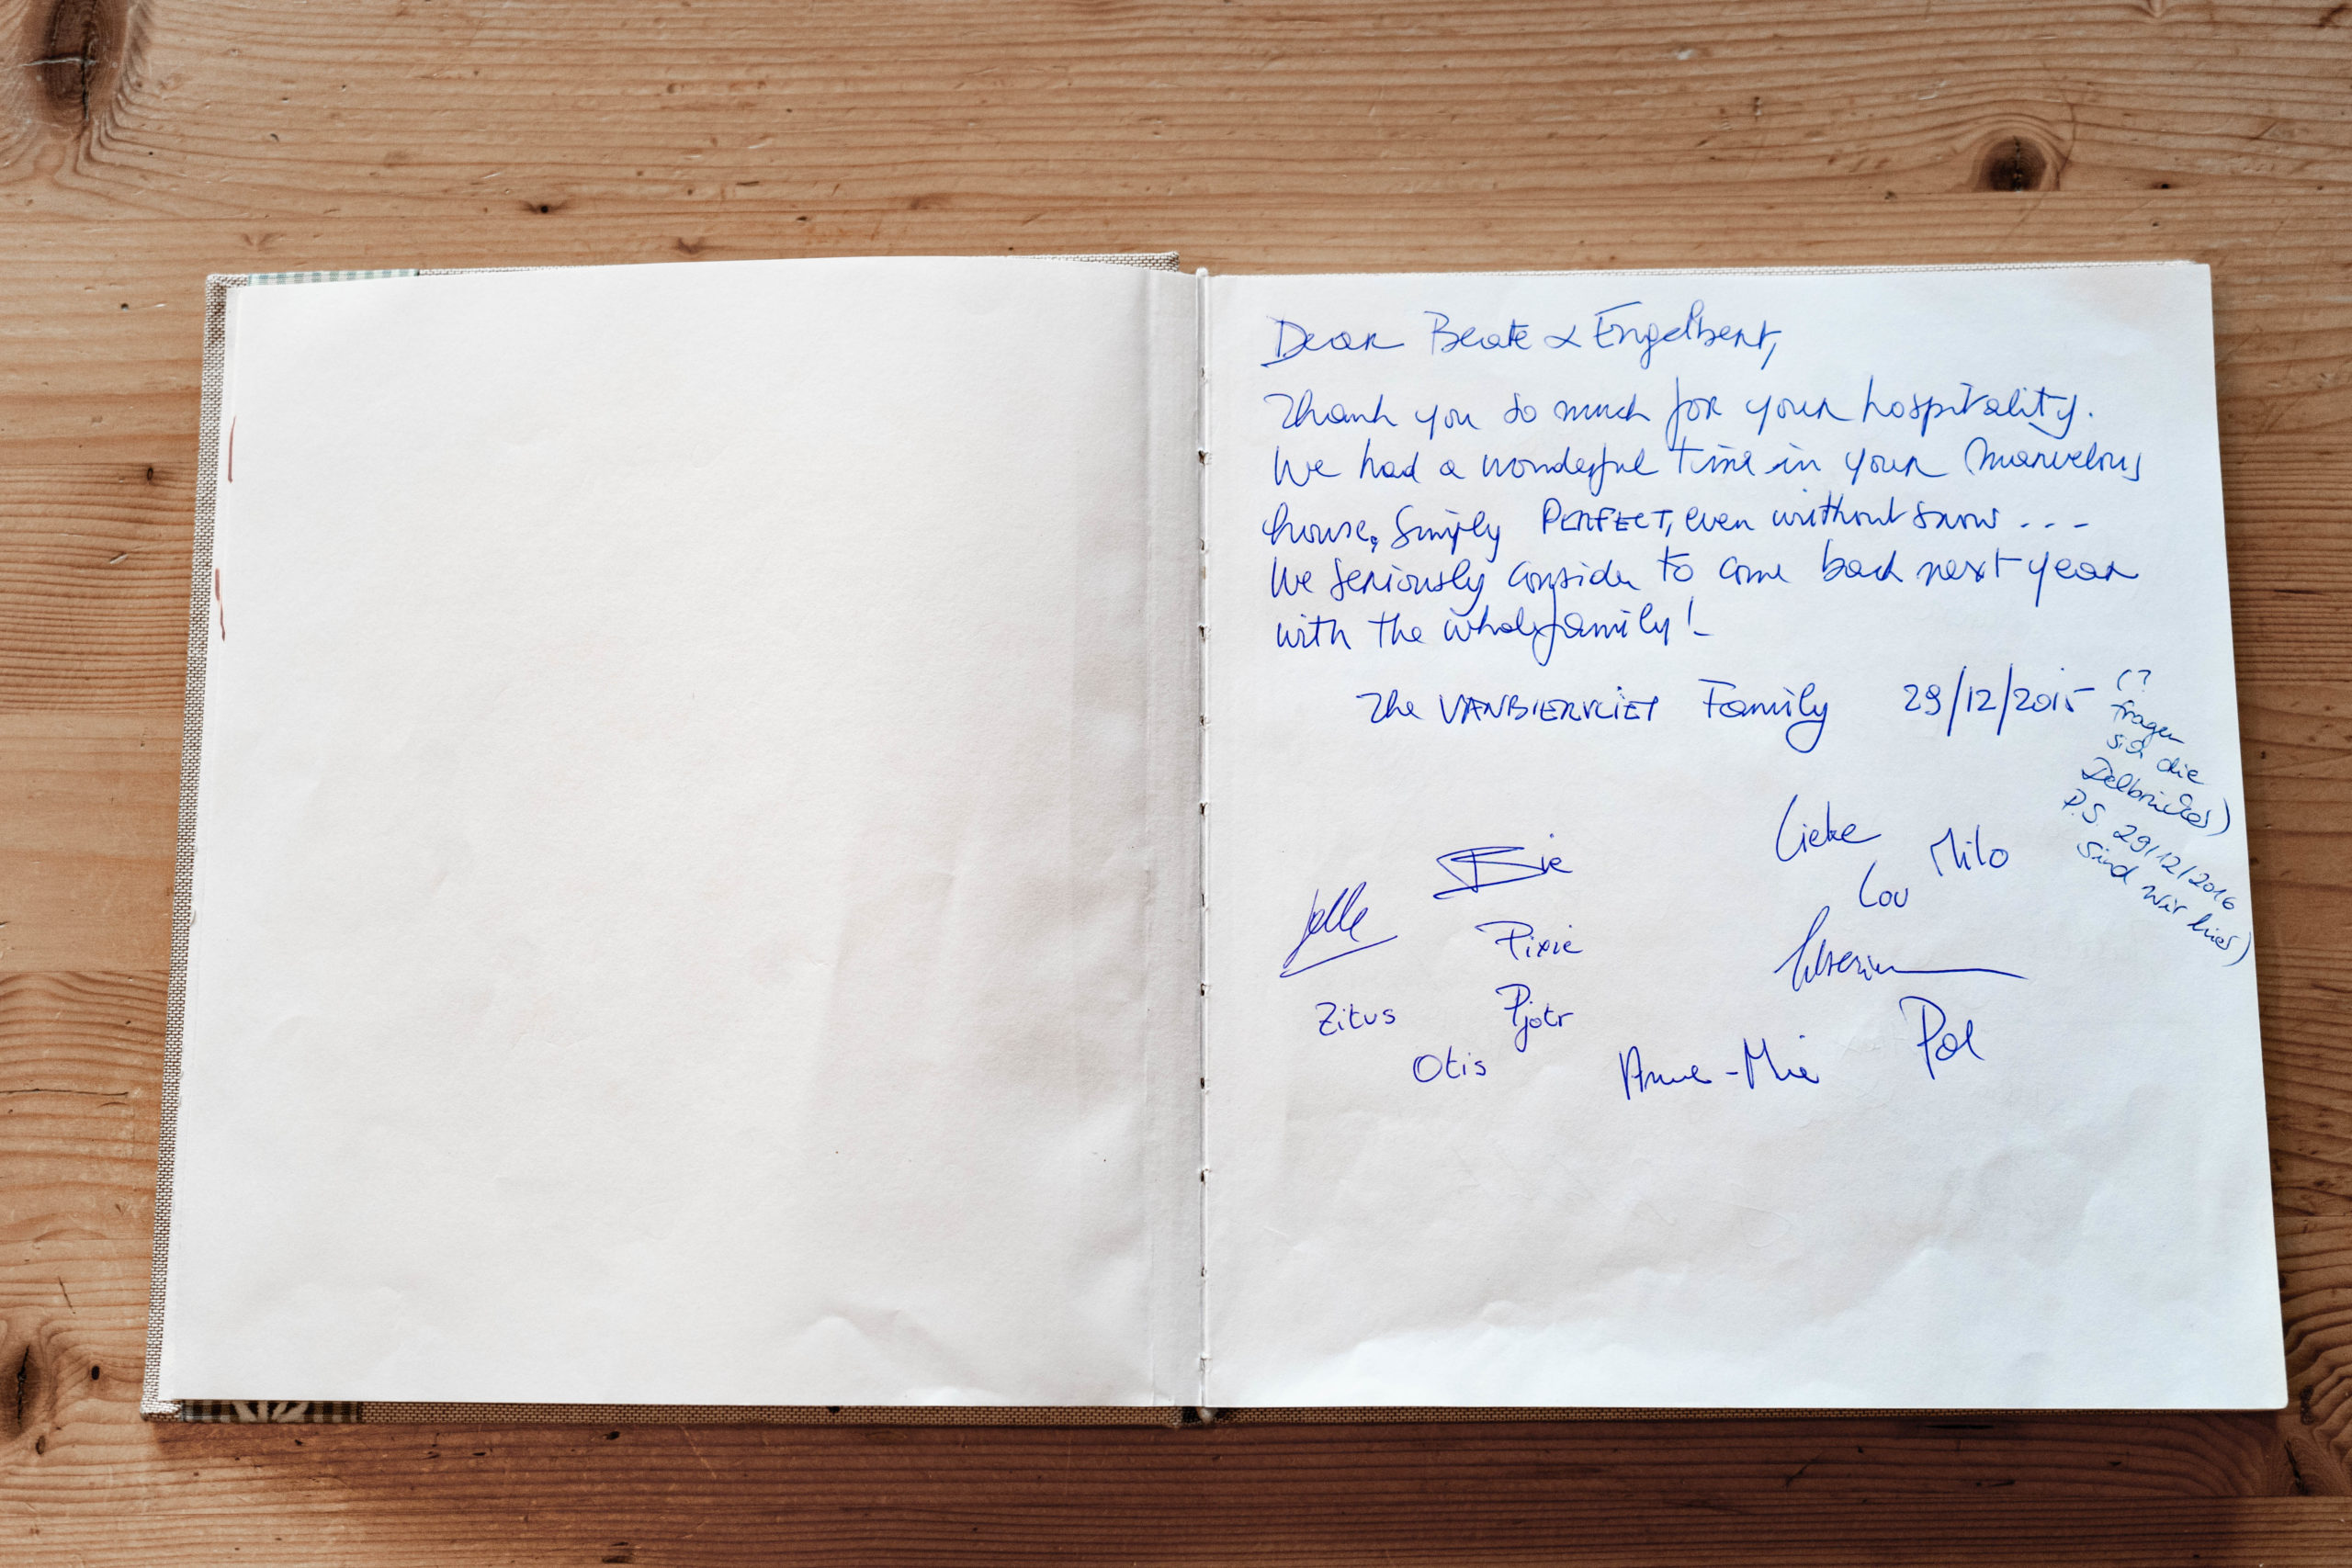 Dear Beate & Engelbert,
Thank you so much for your hospitality.
We had a wonderful time in your marvelous
house, Simply PERFECT, even without snow ---
We seriously consider to come back next year
with the whole family!
The VANBIERVLIET Family 29/12/2015
(?
fragen
sich die
Delbrücks)
P.S. 29/12/2016
sind wir hier)
Lieke
Milo
Lou
Bie
Jelle
Pixie
Zitus
Pjotr
Otis
Anne-Mie
Pol